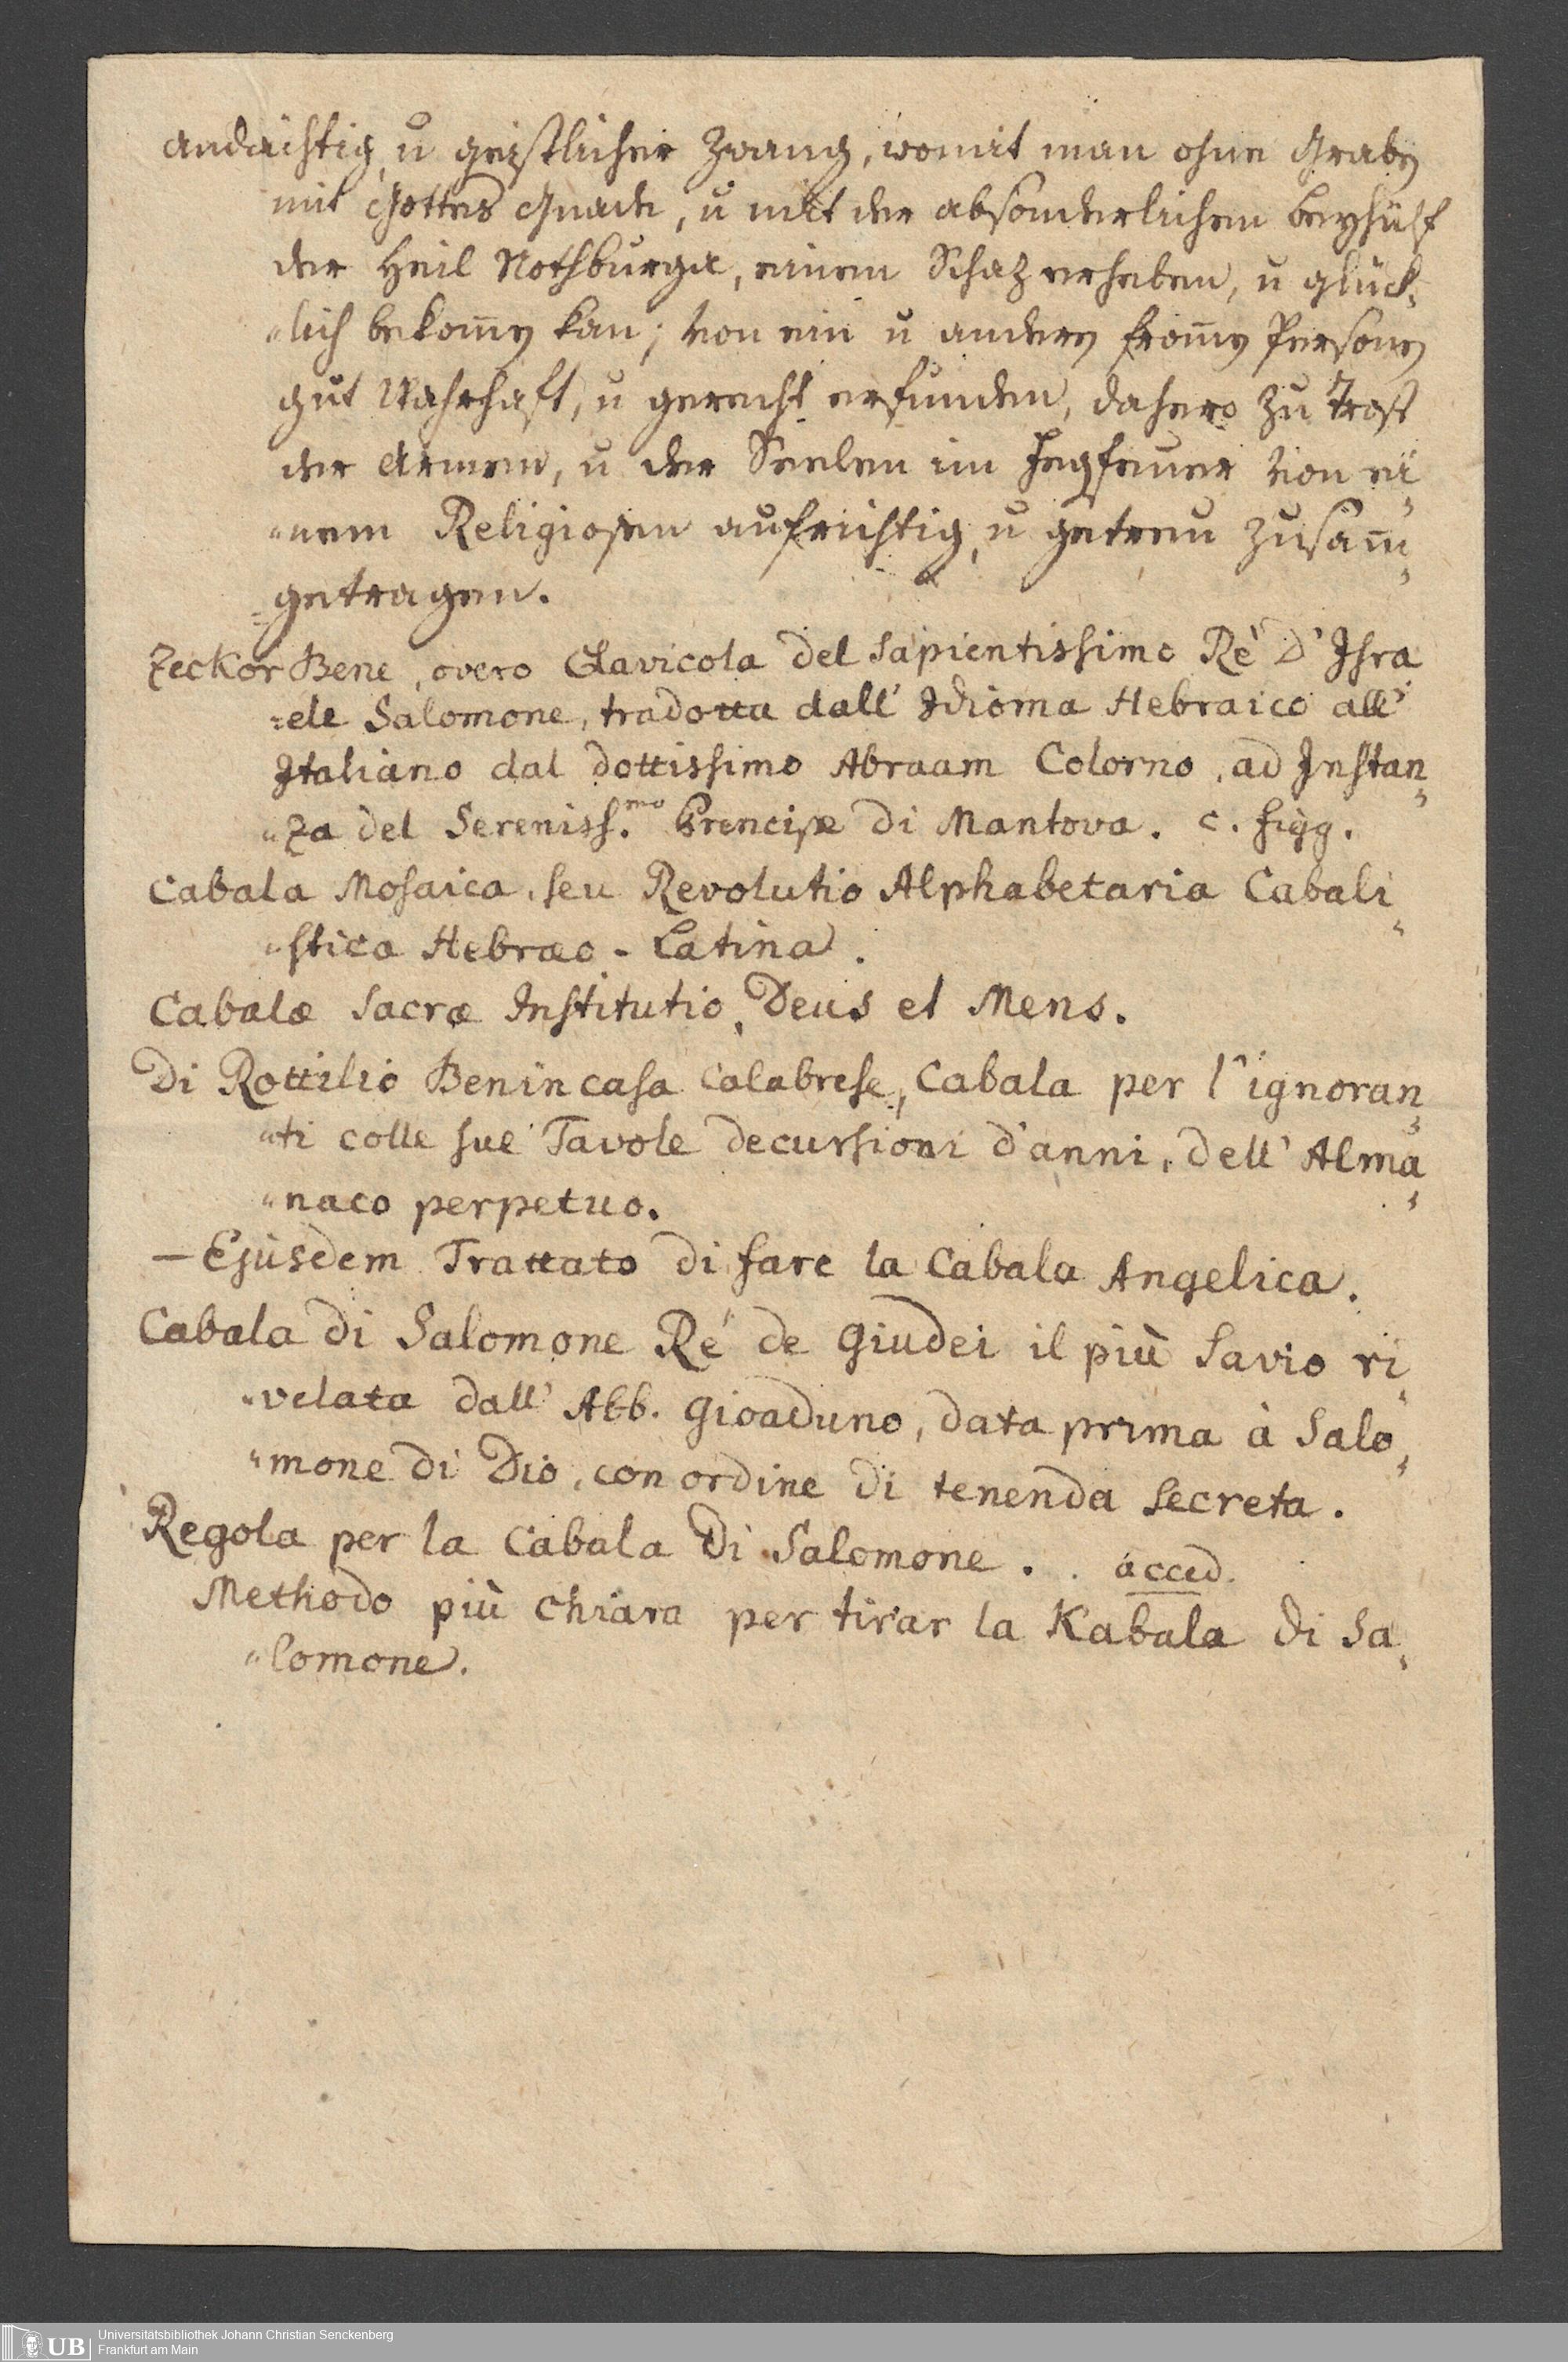 Andächtig, u geistlicher Zwang, womit man ohne Graben
mit Gottes Gnade, u mit der absonderlichen beyhülf
der Heil Nothburga, einen Schaz erheben, u glück-
-lich bekom̅en kan; von ein u andern from̅en Personen
gut Wahrhaft, u gerecht erfunden, dahero zu Trost
der Armen, u der Seelen im Fegfeuer von ei-
-nem Religiosen aufrichtig, u getreu zusam̅-
=getragen.
Zeckor Bene, overo Clavicola del Sapientissimo Rè D'Isra
=ele Salomone, tradotta dall' Idioma Hebraico all'
Italiano dal dottissimo Abraam Colorno, ad Instan-
-za del Sereniss.mo Prencipe di Mantova. c. figg.
Cabala Mosaica, seu Revolutio Alphabetaria Cabali-
-stica Hebræo-Latina.
Cabalæ Sacræ Institutio, Deus et Mens.
Di Rottilio Benincasa Calabrese, Cabala per l'ignoran-
-ti colle sue Tavole decursioni d'anni, dell' Alma-
-naco perpetuo.
— Ejusdem Trattato di fare la Cabala Angelica.
Cabala di Salomone Ré de Giudei il più Savio ri-
-velata dall' Abb. Gioaduno, data prima à Salo-
-mone di Dio, con ordine di tenenda secreta.
Regola per la Cabala di Salomone. . acced.
Methodo più chiara per tirar la Kabala di Sa-
-lomone.
UB Universitätsbibliothek Johann Christian Senckenberg
Frankfurt am Main